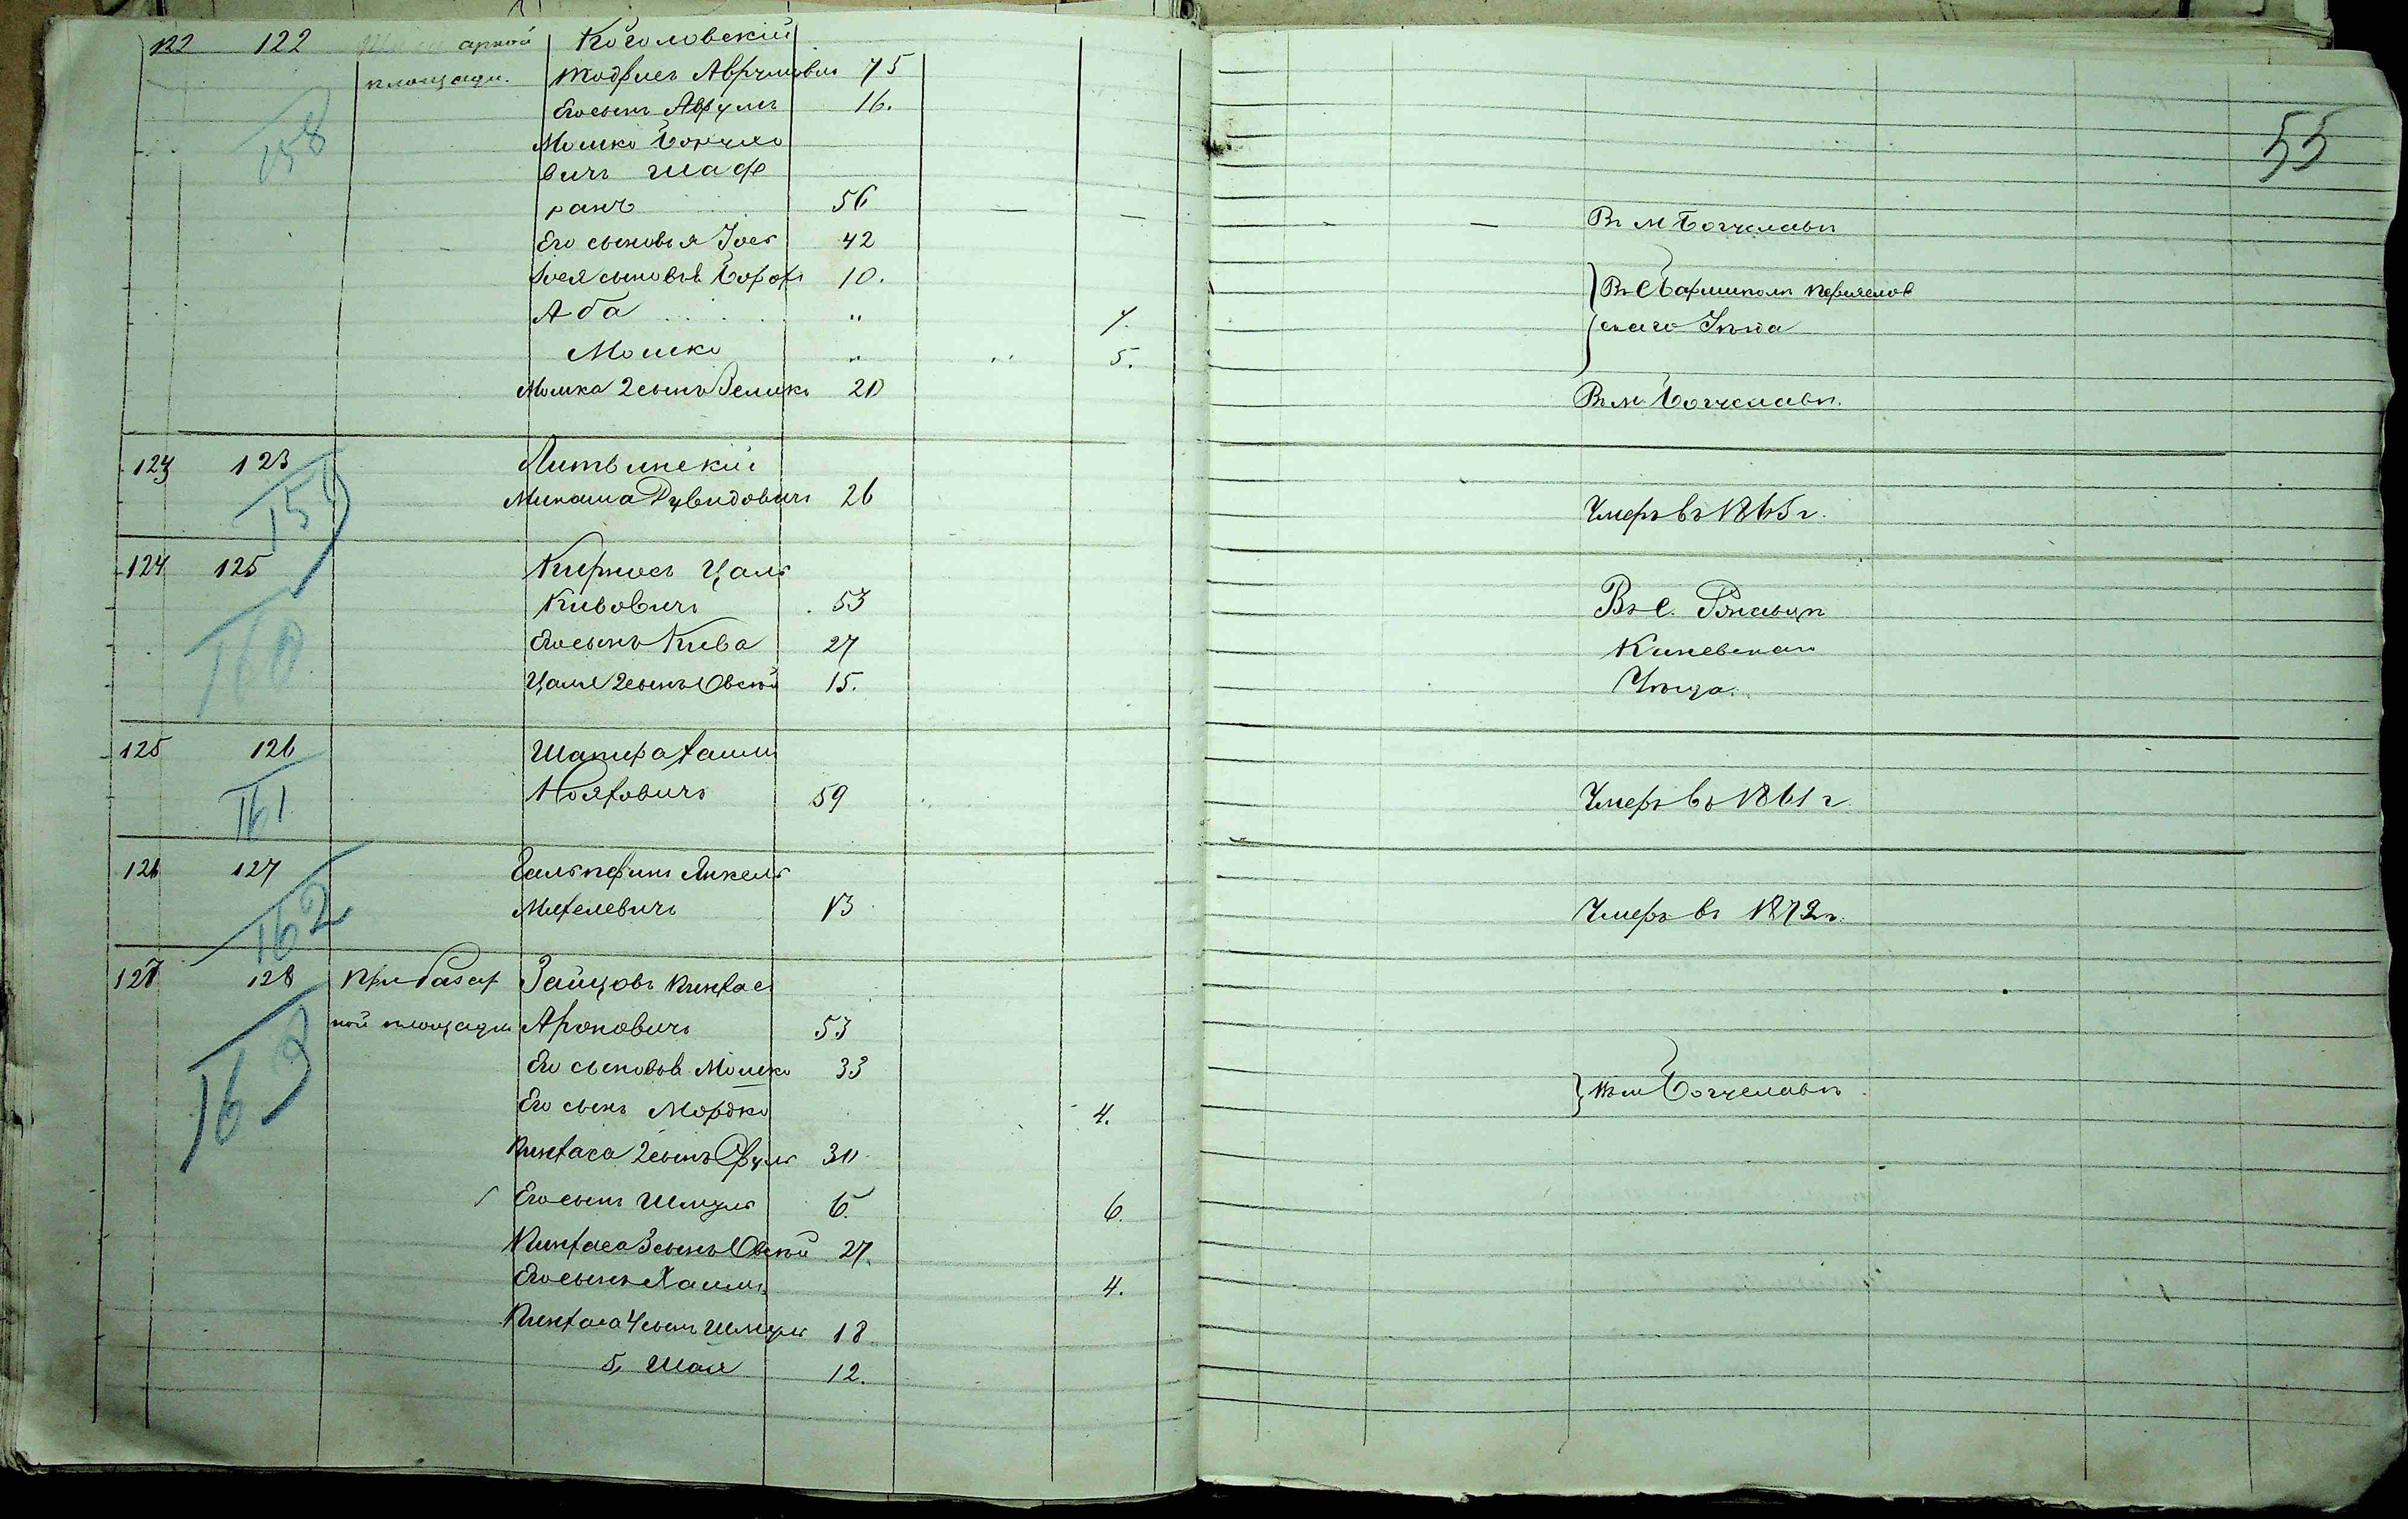 122 122 арной Коголовскій
площади. Тодрисъ Аврумовичъ 75
158 Его сынъ Аврумъ 16.
55
Мошко Борухо
вичъ Шаф
ранъ 56 — — — — Въ м Богуславѣ
Его сыновья Іось 42
Іося сыновья Борохъ 10. Въ с
Аба " 7. скаго Уѣзда
Мошко " " 5.
Мошка 2 сынъ Зелик 20 Въ м. Богуславѣ.
123 123 Литвинскій
159 Микаша Дувидовичъ 26 Умеръ въ 1865 г.
124 125 Кирносъ Цаль
Кивовичъ 53 Въ с.
160 Его сынъ Кива 27 Каневскаго
Цаля 2 сынъ Овсѣй 15. Уѣзда.
125 126 Шапира Хаимъ
161 Нояхович 59 Умеръ въ 1861 г.
126 127 Гальперинъ Янкель
162 Михелевичъ 13 Умеръ въ 1872 г.
127 128 При базар Зайцовъ Пинхас
ной площади Ароновичъ 53
163 Его сыновья Мошко 33 Въ м Богуславѣ
Его сынъ Мордко 4.
Пинхаса 2 сынъ Сруль 30
Его сынъ Шмуль 6. 6.
Пинхаса 3 сынъ Овсѣй 27.
Его сынъ Хаимъ 4.
Пинхаса 4 сынъ Шмуль 18
5, Шая 12.